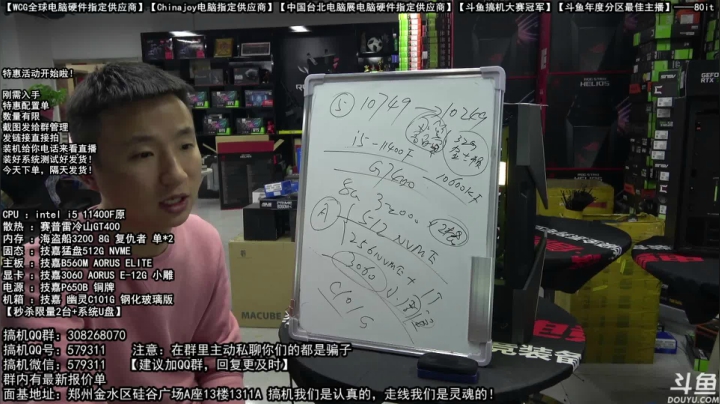 【WCG全球电脑硬件指定供应商】【Chinajoy电脑指定供应商】【中国台北电脑展电脑硬件指定供应商】【斗鱼搞机大赛冠军】【斗鱼年度分区最佳主播】——80it
特惠活动开始啦!
刚需入手
特惠配置单
数量有限
截图发给群管理
发链接直接拍
装机给你电话来看直播
装好系统测试好发货!
今天下单，隔天发货!
CPU : intel i5 11400F原
散热 : 赛普雷冷山GT400
内存 : 海盗船3200 8G 复仇者 单*2
固态 : 技嘉猛盘512G NVME
主板 : 技嘉B560M AORUS ELITE
显卡 : 技嘉3060 AORUS E-12G 小雕
电源 : 技嘉P650B 铜牌
机箱 : 技嘉 幽灵C101G 钢化玻璃版
【秒杀限量2台+系统U盘】
搞机QQ群: 308268070
搞机QQ号: 579311 注意: 在群里主动私聊你们的都是骗子
搞机微信: 579311 【建议加QQ群，回复更及时】
群内有最新报价单
面基地址: 郑州金水区硅谷广场A座13楼1311A 搞机我们是认真的，走线我们是灵魂的!
10749 10269
i5-11400F 10600KF
GT400
8G 3200
512 NVME
256NVME + 1T
3060
MACUBE
HELIOS
GEFO
RTX
竞装备
斗鱼
DOUYU.COM